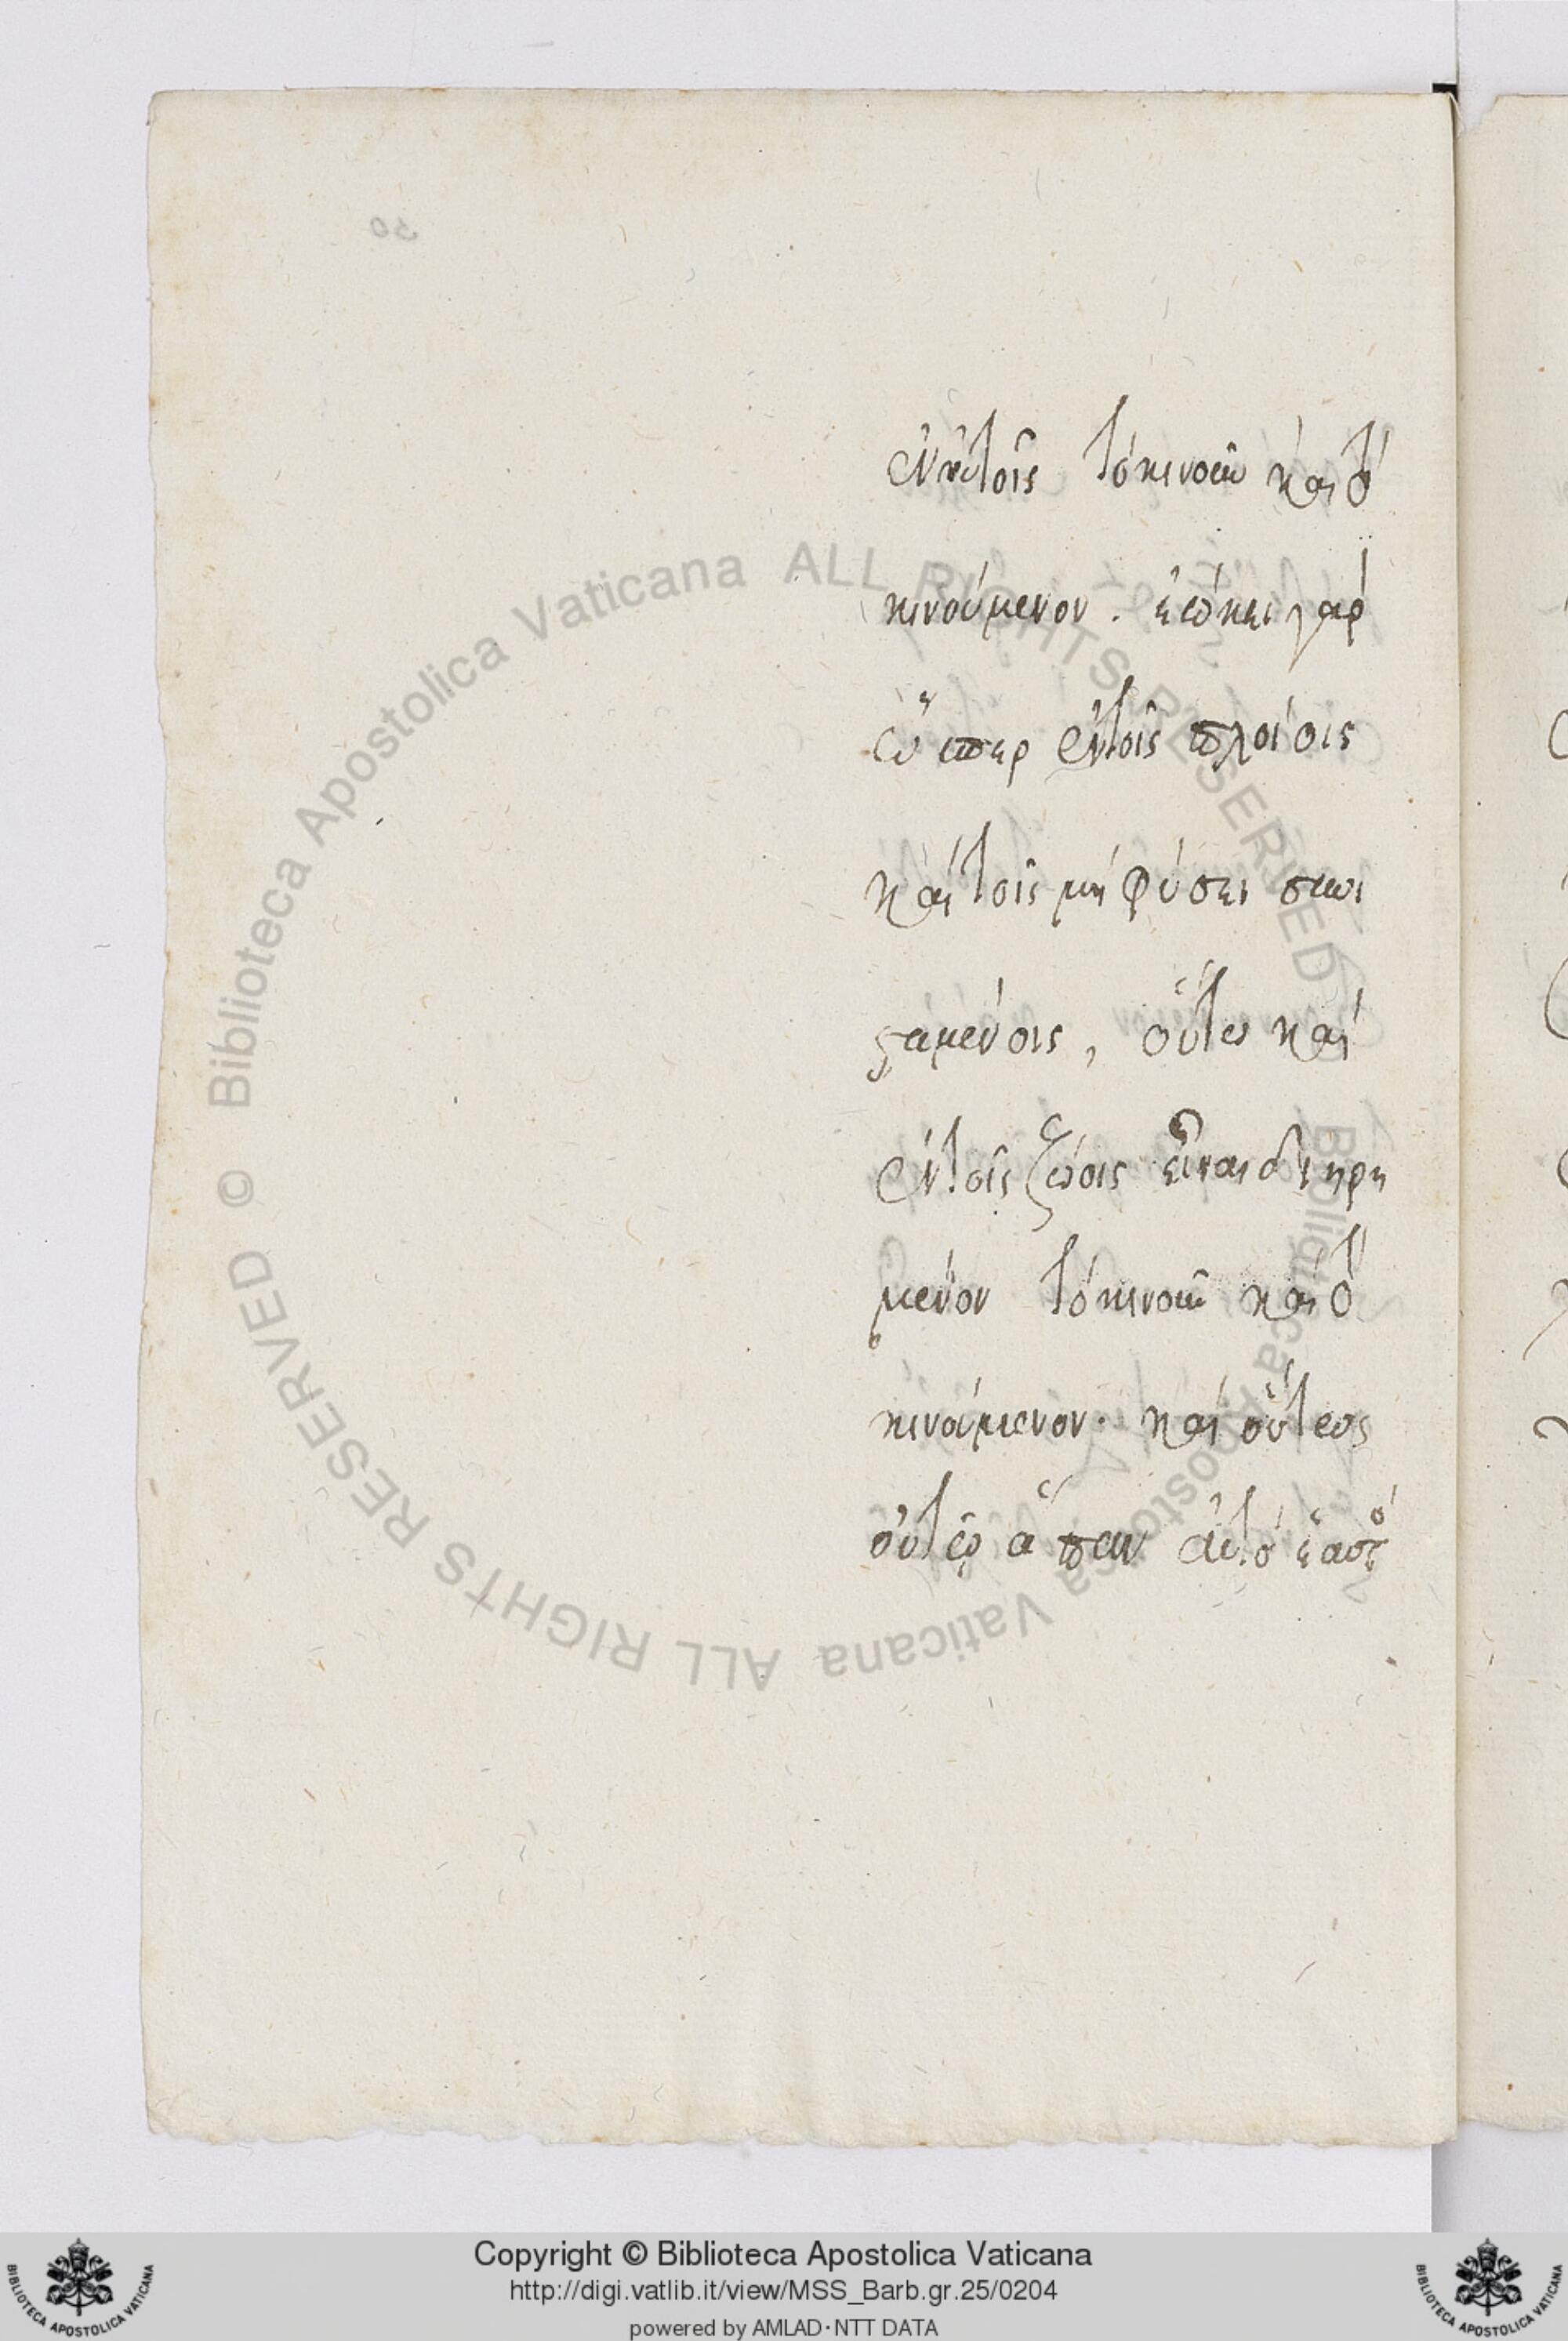 ἐν αὐτοῖς τὸ κινοῦν καὶ τὸ
κινούμενον. ἔοικε γὰρ
ὥσπερ ἐν τοῖς πλοίοις
καὶ τοῖς μὴ φύσει συνι
σταμένοις, οὕτω καὶ
ἐν τοῖς ζώοις εἶναι διῃρη
μένον τὸ κινοῦν καὶ τὸ
κινούμενον. καὶ οὕτως
οὕτω ἅπαν αὐτὸ ἑαυτὸ
30
Biblioteca Apostolica Vaticana ALL RIGHTS RESERVED ©
Biblioteca Apostolica Vaticana ALL RIGHTS RESERVED ©
Copyright © Biblioteca Apostolica Vaticana
http://digi.vatlib.it/view/MSS_Barb.gr.25/0204
powered by AMLAD·NTT DATA
BIBLIOTECA APOSTOLICA VATICANA
BIBLIOTECA APOSTOLICA VATICANA